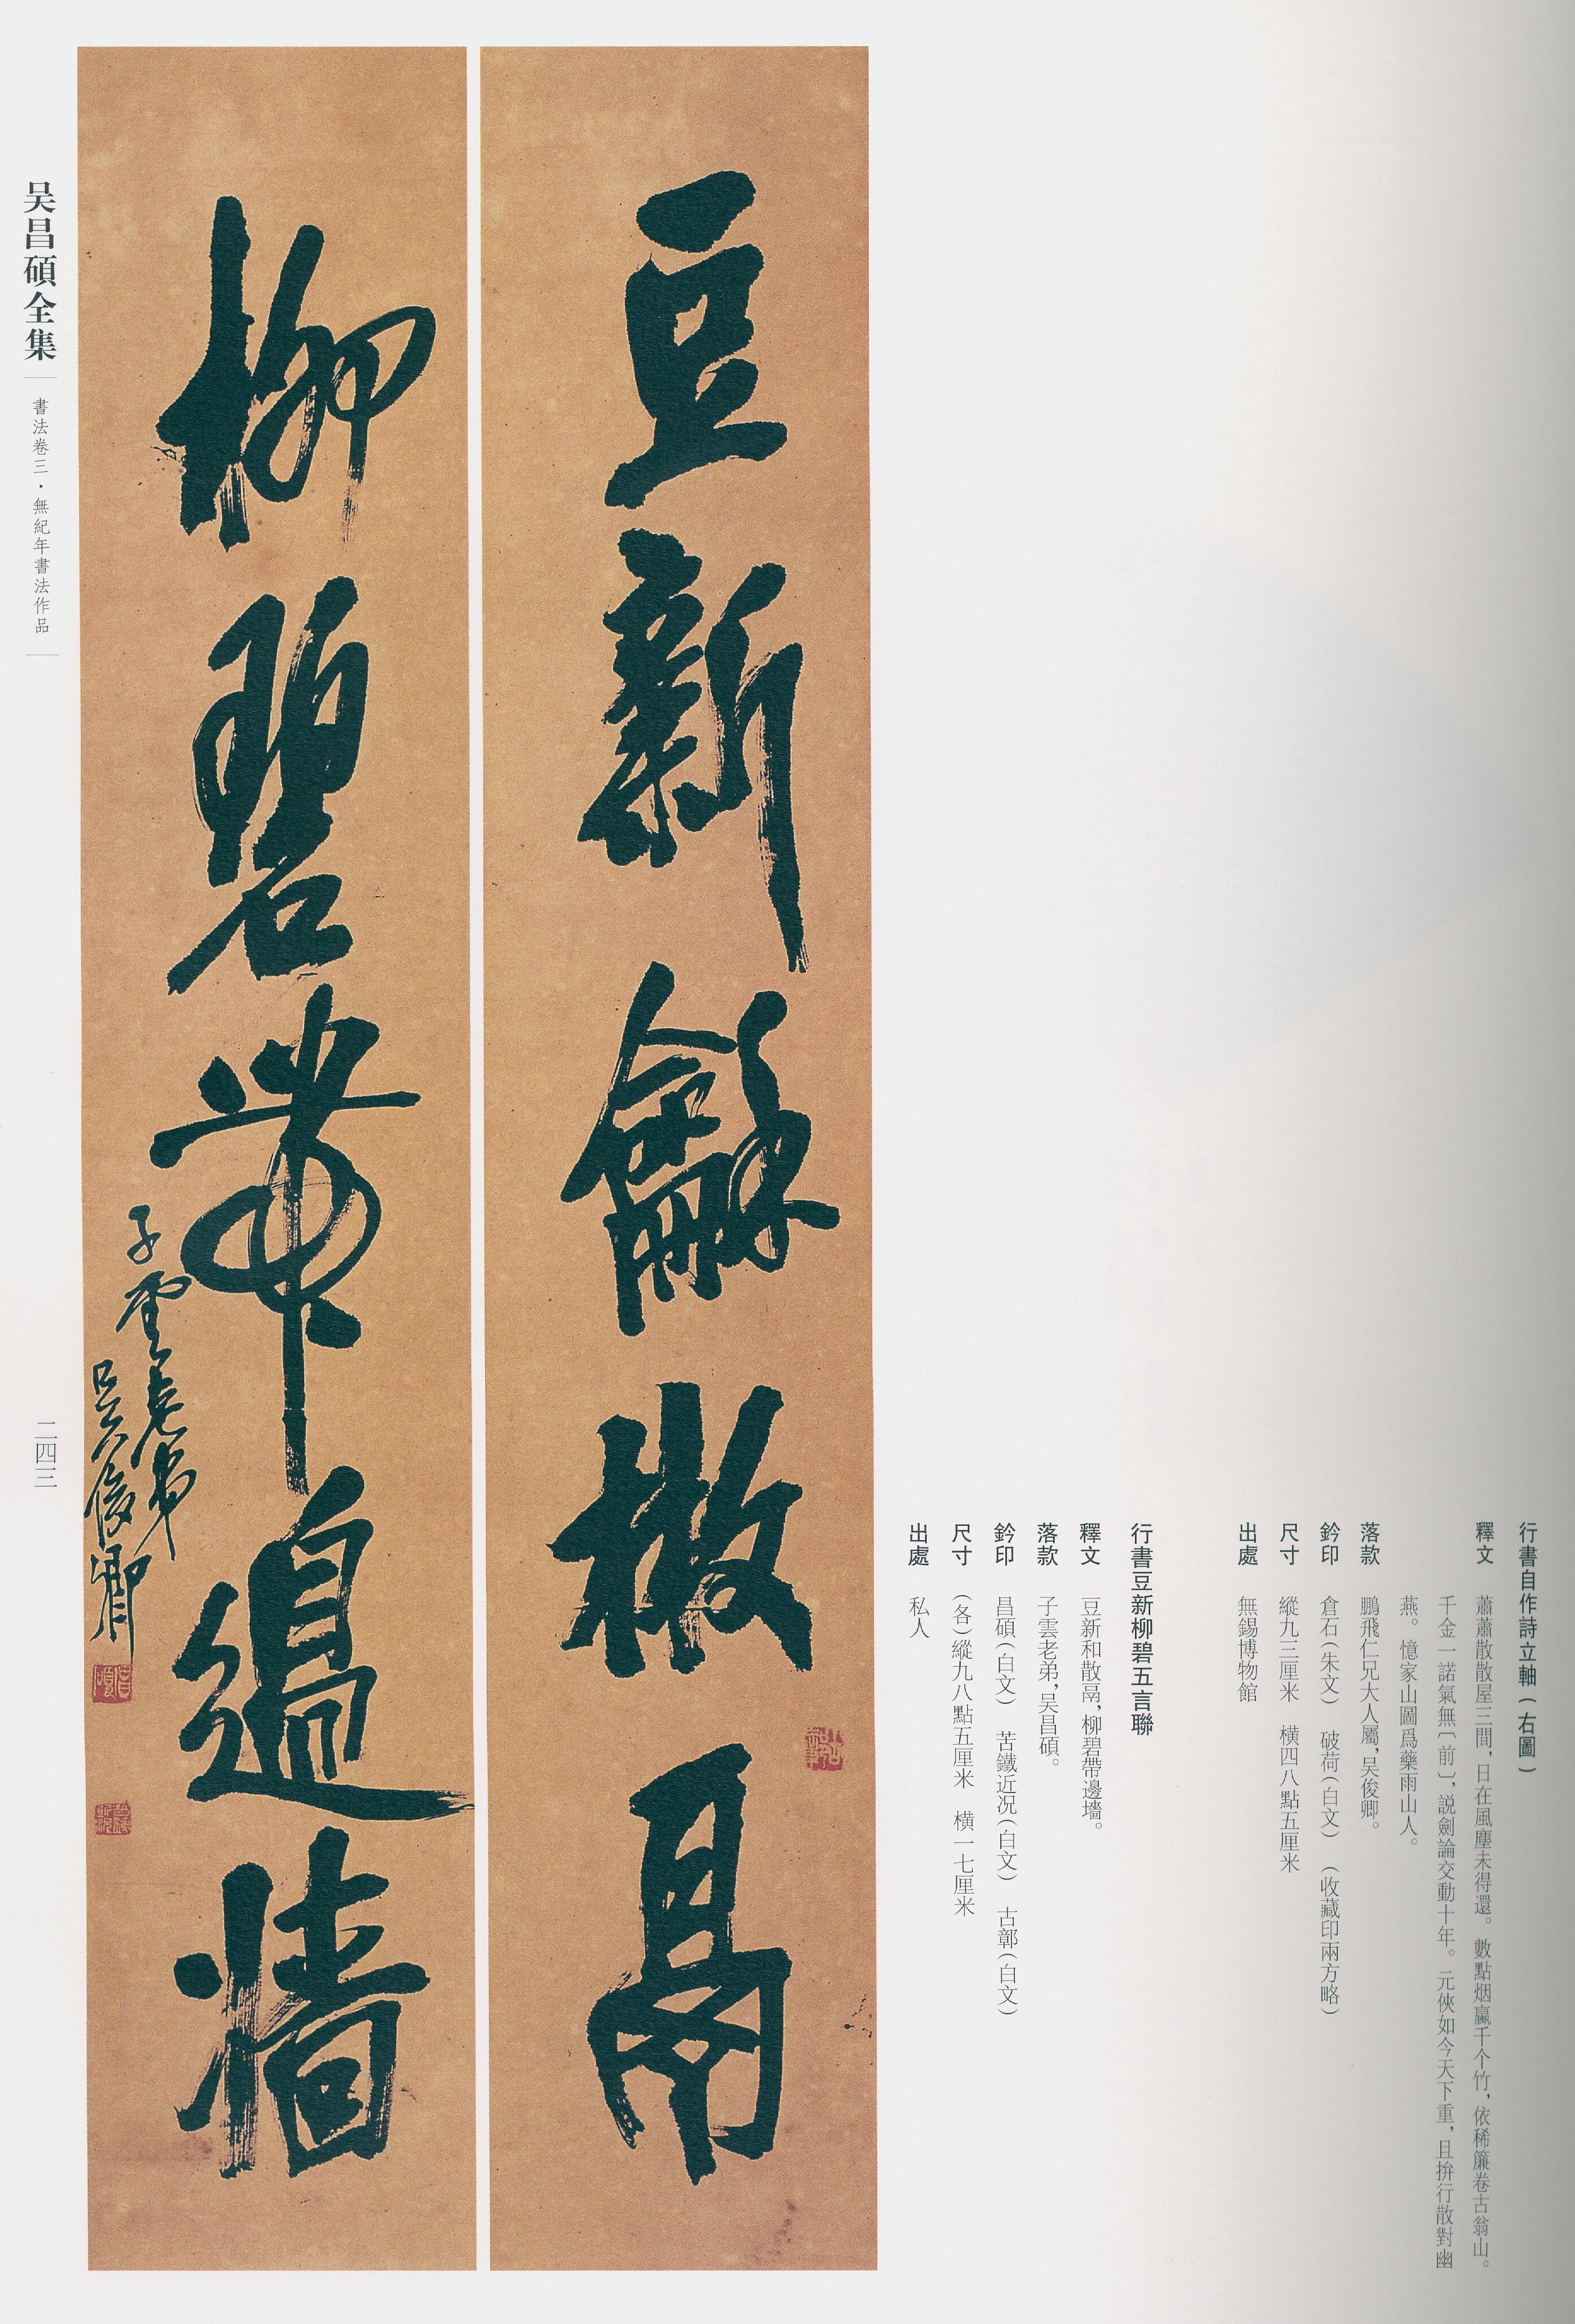 行書自作詩立軸（右圖）
釋文　蕭蕭散散屋三間，日在風塵未得還。數點烟蠃千个竹，依稀簾卷古翁山。
千金一諾氣無〔前〕，説劍論交動十年。元俠如今天下重，且拚行散對幽
燕。憶家山圖爲藥雨山人。
落款　鵬飛仁兄大人屬，吴俊卿。
鈐印　倉石（朱文）　破荷（白文）　（收藏印兩方略）
尺寸　縱九三厘米　横四八點五厘米
出處　無錫博物館
行書豆新柳碧五言聯
釋文　豆新和散鬲，柳碧帶邊墻。
落款　子雲老弟，吴昌碩。
鈐印　昌碩（白文）　苦鐵近况（白文）　古鄣（白文）
尺寸　（各）縱九八點五厘米　横一七厘米
出處　私人
豆新龢㪔鬲
柳碧帶邊牆
子雲老弟
吳俊卿
吴昌碩全集
書法卷三·無紀年書法作品
二四三